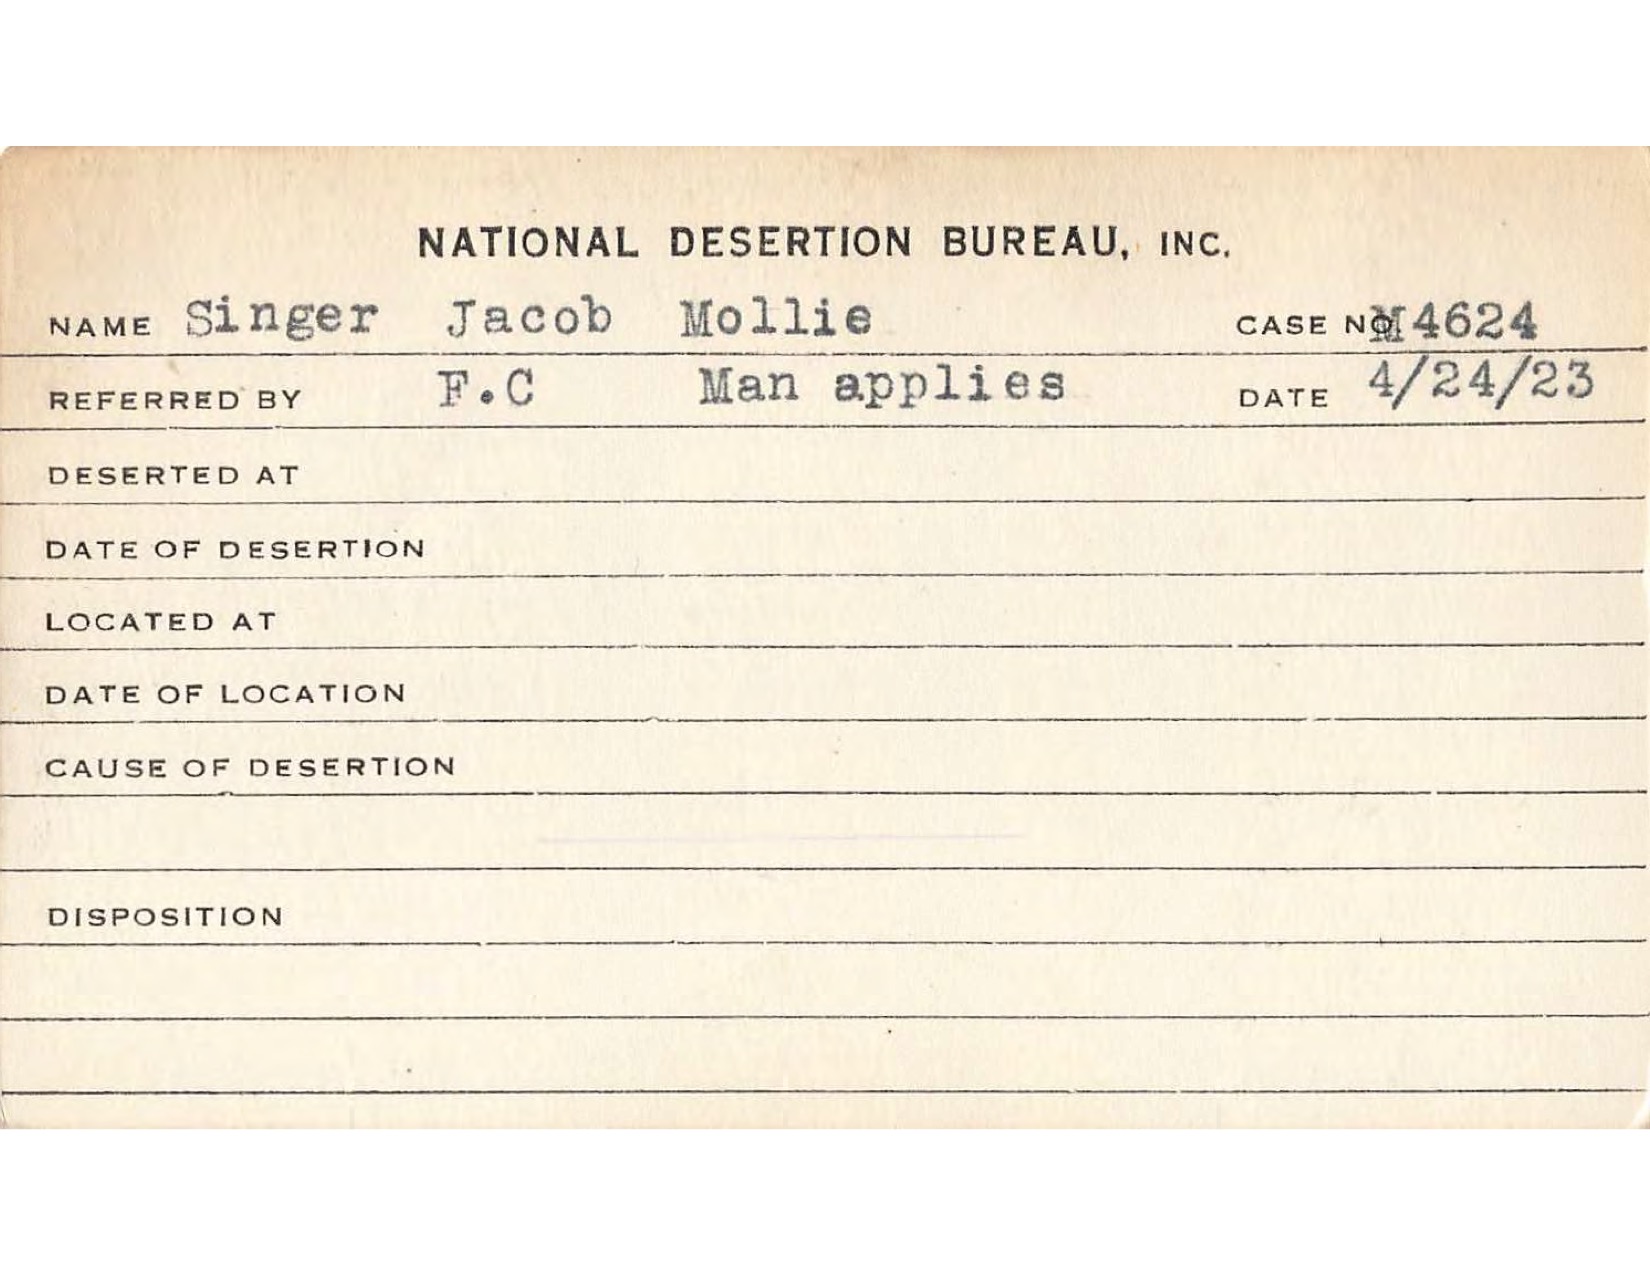 NATIONAL DESERTION BUREAU, INC.
NAME Singer Jacob Mollie CASE NO. M4624
REFERRED BY F.C Man applies DATE 4/24/23
DESERTED AT
DATE OF DESERTION
LOCATED AT
DATE OF LOCATION
CAUSE OF DESERTION
DISPOSITION